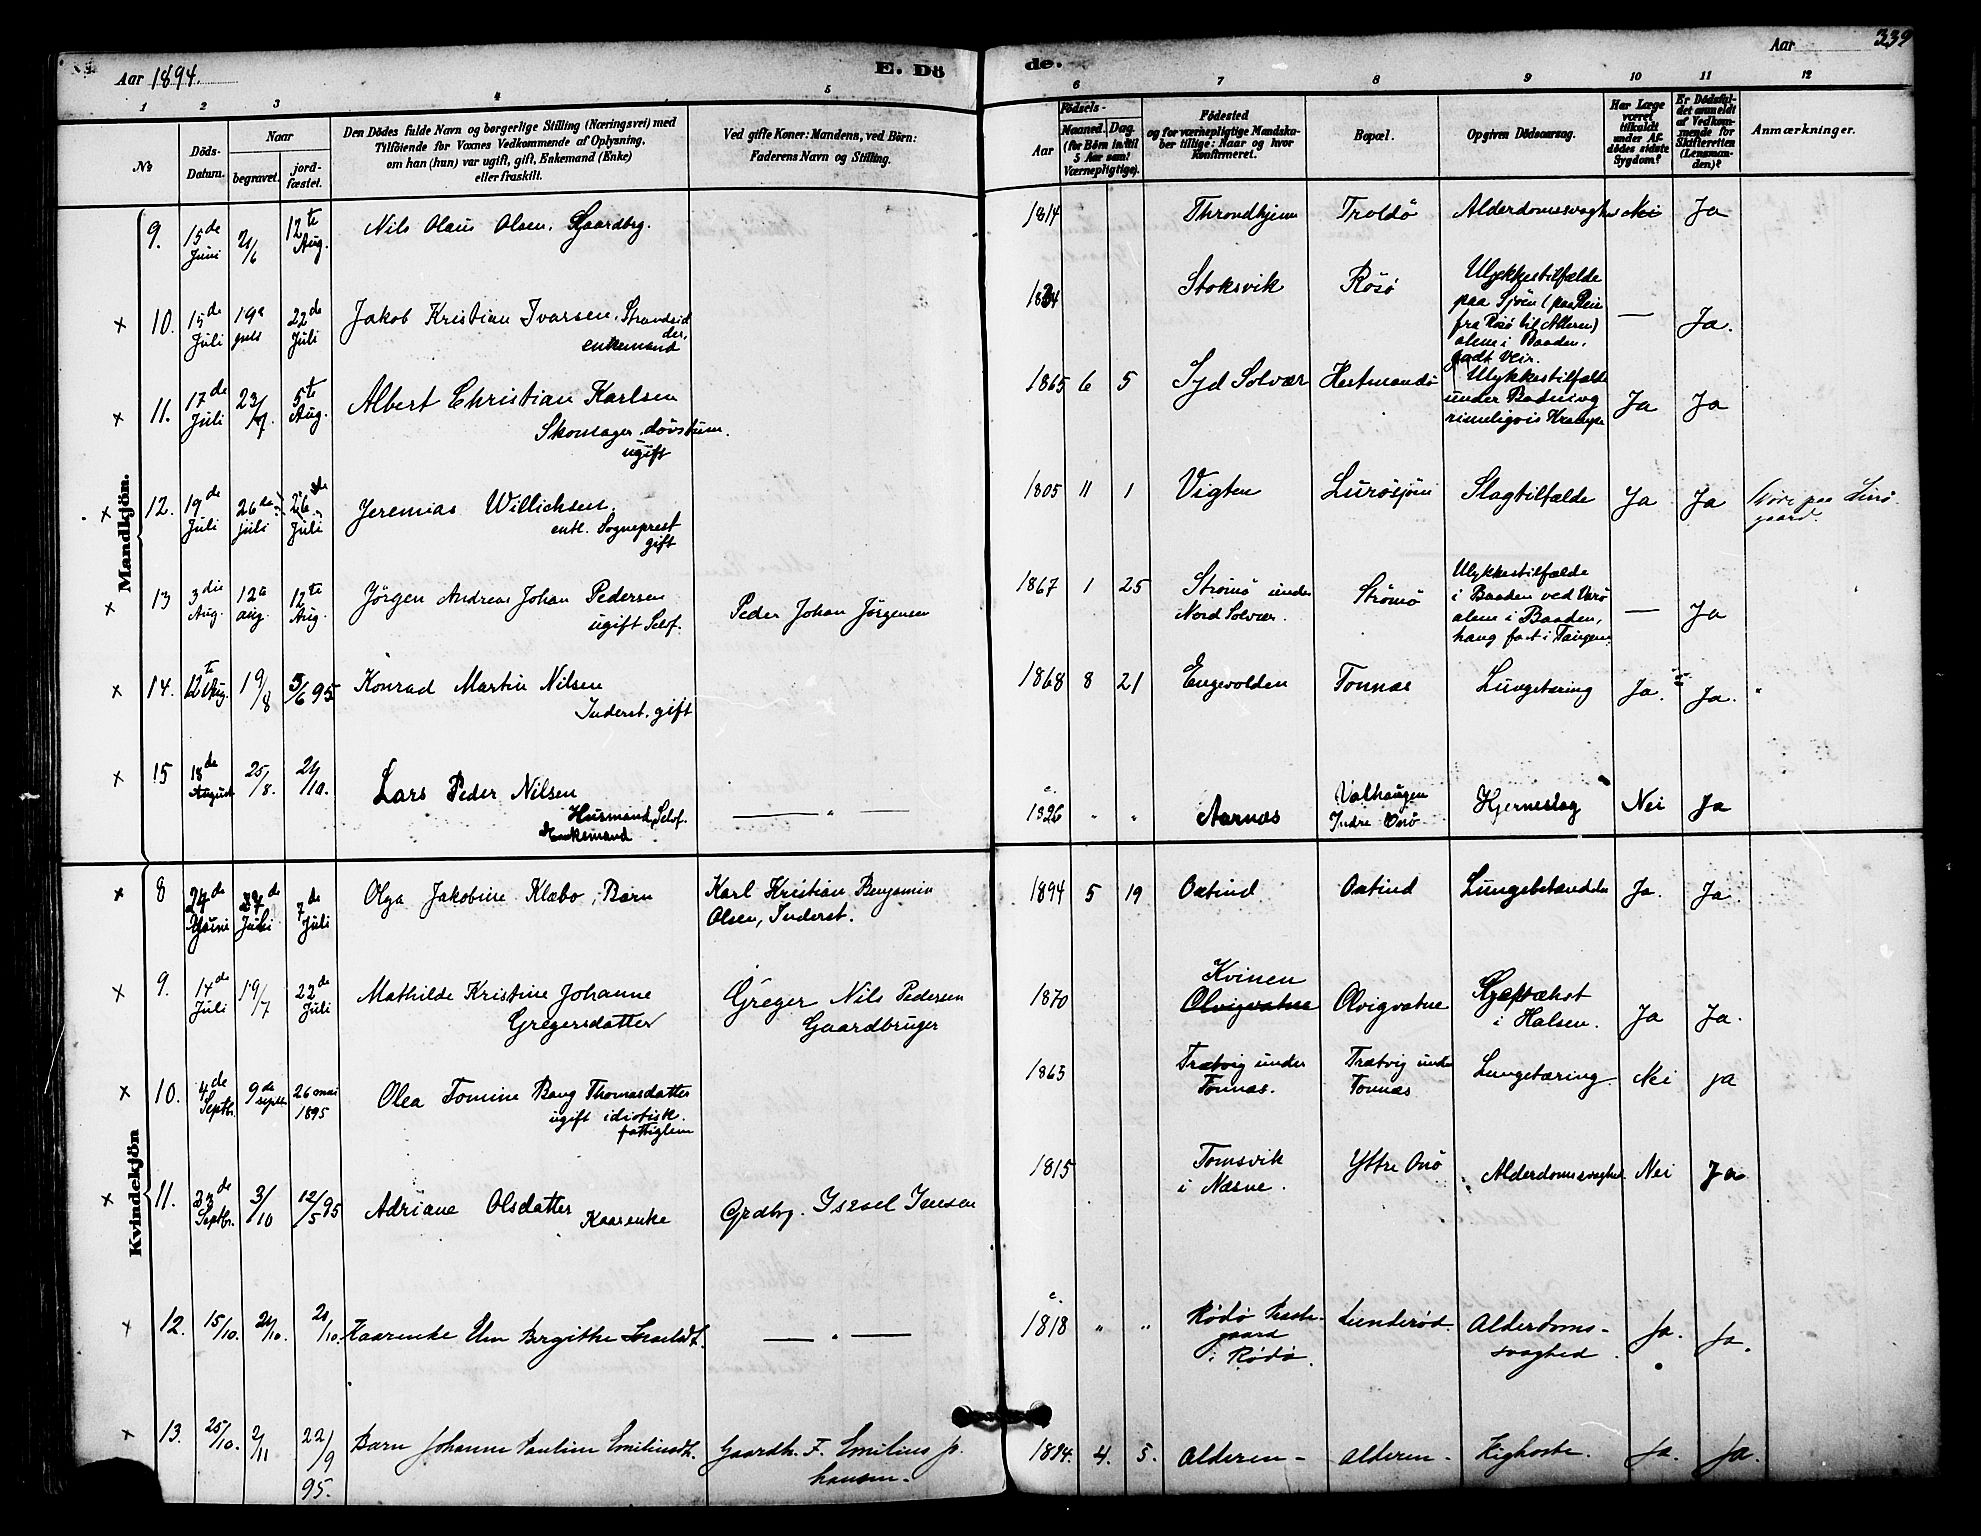 Aar 1894.
E. Dö
de.
Aar
339
1 2 3 4 5 6 7 8 9 10 11 12
No
Döds-Datum.
Naar
begravet.
jord-fæstet.
Den Dödes fulde Navn og borgerlige Stilling (Næringsvei) med
Tilföiende for Voxnes Vedkommende af Oplysning,
om han (hun) var ugift, gift, Enkemand (Enke)
eller fraskilt.
Ved gifte Koner: Mandens, ved Börn:
Faderens Navn og Stilling.
Födsels-
Aar
Maaned. Dag.
(for Börn indtil
5 Aar samt
Værnepligtige).
Födested
og for værnepligtige Mandska-
ber tillige: Naar og hvor
Konfirmeret.
Bopæl.
Opgiven Dödsaarsag.
Har Læge
været
tilkaldt
under Af-
dödes sidste
Sygdom?
Er Dödsfal-
det anmeldt
af Vedkom-
mende for
Skifteretten
(Lensman-
den)?
Anmærkninger.
Mandkjön.
9. 15de Juni 21/6 12te Aug. Nils Olaus Olsen, Gaardbrg. 1814 Throndhjem Troldö Alderdomssvaghed Nei Ja
× 10. 15de Juli 19de juli 22de Juli Jakob Kristian Ivarsen, Strandsid
der,
enkemand
Stoksvik Rösö Ulykkestilfælde
paa Sjöen (paa Reise
fra Rösö til Alderen)
alene i Baaden,
godt Veir.
— Ja.
× 11. 17de Juli 23/7. 5te Aug. Albert Christian Karlsen
Skomager, døvstum.
ugift
1865 6 5 Syd Solvær Hestmandö Ulykkestilfælde
under Badning
rimeligvis Krampe
Ja Ja
× 12. 19de Juli 26de juli 26de Juli Jeremias Willichsen,
entl. Sogneprest
gift
1805 11 1 Vigten Lurösjöen Slagtilfælde Ja Ja
gaard.
× 13 3die Aug. 12te aug. 12te Aug. Jörgen Andreas Johan Pedersen
ugift Selof.
Peder Johan Jörgensen
1867 1 25 Strömö under
Nord Solvær.
Strömö
Ulykkestilfælde
i Baaden ved
alene i Baaden,
hang fast i Tangen.
— Ja
× 14. 12te Aug. 19/8 5/6 95 Konrad Martin Nilsen
Inderst, gift
1868 8 21 Engevolden Tonnes Lungetæring Ja. Ja.
× 15 18de August 25/8. 21/10. Lars Peder Nilsen
Husmand, Selof.
Enkemand
— " —
1826 " " Aarnes Valhaugen
Indre Onö
Hjerneslag Nei Ja
Kvindekjön
× 8 7de Juli Olga Jakobine Klæbo, Barn
Karl Kristian Benjamin
Olsen, Inderst.
1894 5 19 Oxtind Oxtind Lungebetændelse Ja. Ja.
× 9. 14de Juli 19/7 22de Juli Mathilde Kristine Johanne
Gregersdatter
Greger Nils Pedersen
Gaardbruger
1870 Kvinen
Olvigvatne
Olvigvatne
i Halsen.
Ja Ja.
× 10. 4de Septbr. 9de septbr. 26 mai 1895 Olea Tomine Bang Thomasdatter
ugift idiotisk.
fattiglem
1863 Trætvig under
Tonnes.
Trætvig under
Tonnes
Lungetæring. Nei ja
× 11. 23de Septbr. 3/10 12/5 95 Adriane Olsdatter
Kaarenke
Grdbrg. Israel Iversen
1815 Tomsvik
i Næsne.
Yttre Onö Alderdomssvaghed Nei Ja
× 12. 15/10. 21/10. 21/10. Kaarenke Elen Birgitte Israelsdt. — " — 1818 " " Rödö Præste-
gaard
i Rödö.
Lunderöd. Alderdoms-
svaghed.
Ja. Ja.
× 13. 25/10. 2/11 22/9 95. Barn Johanne Pauline Emiliusdt. Gaardbr. F. Emilius Jo-
hansen.
1894. 4. 5. Alderen - Alderen - Kighoste. Ja. Ja.